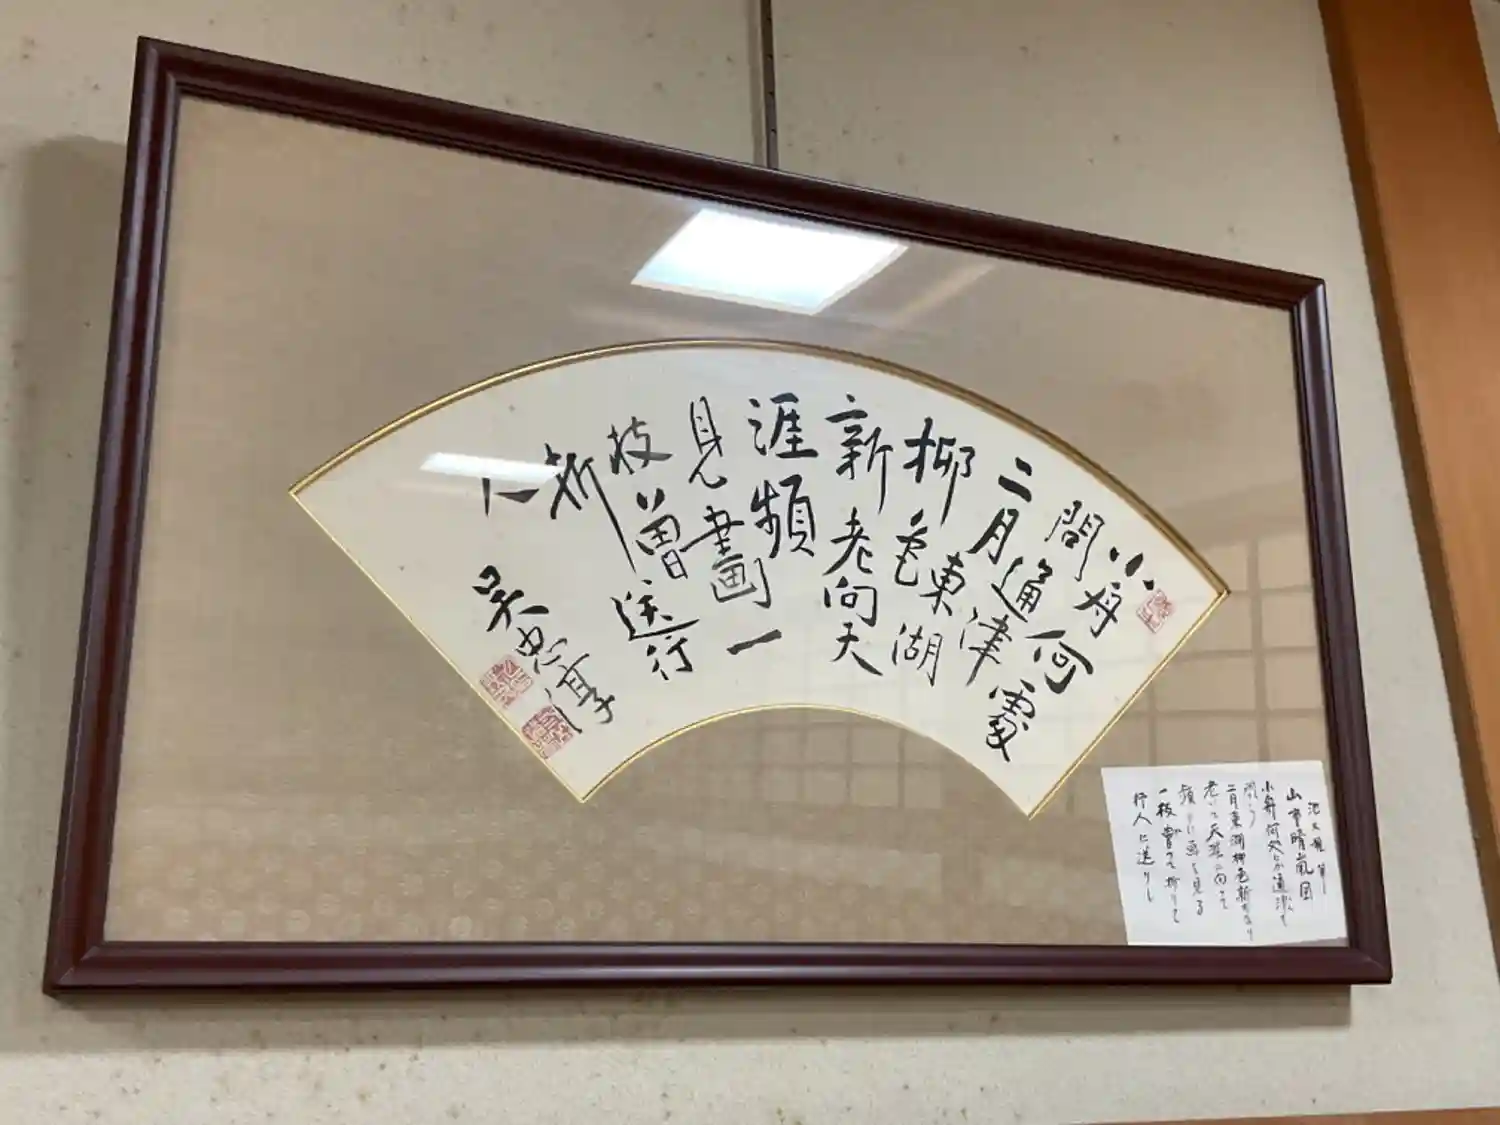 小舟何處
問通津
二月東湖
柳色
新老向天
涯頻
見畫一
枝曾
折送行
人
吴忠淳
池大雅 筆
山市晴嵐図
小舟何処にか通津を
問う
二月東湖柳色新たなり
老いて天涯に向って
頻りに画を見る
一枝曽て折りて
行人に送りし